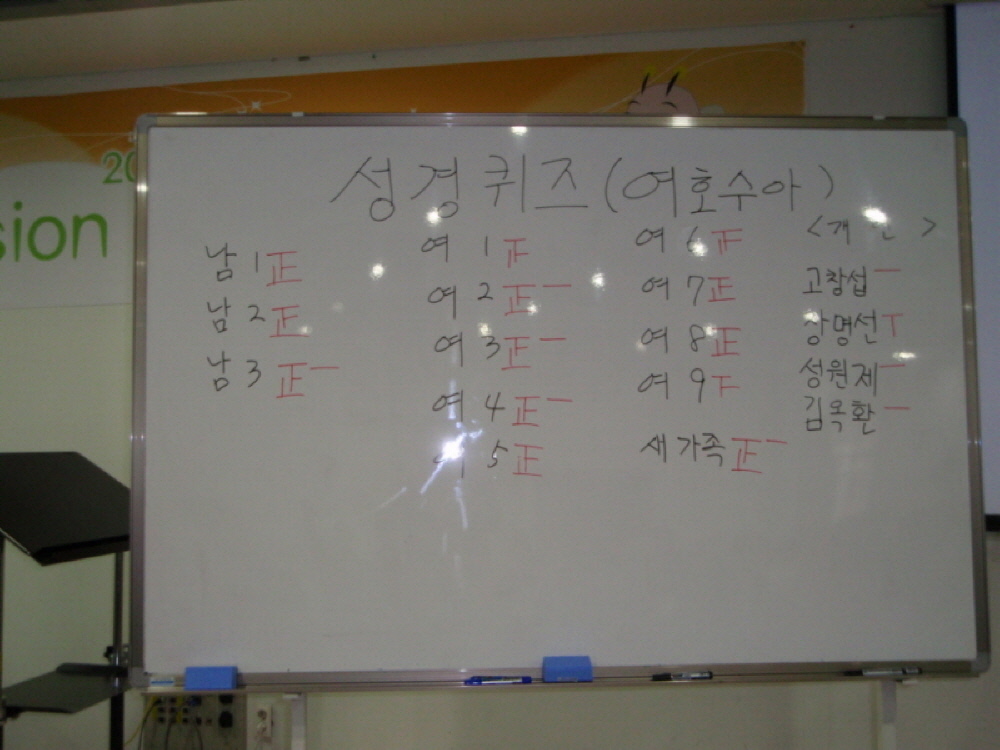 성경퀴즈(여호수아)
남 1 正
남 2 正
남 3 正 一
여 1 正
여 2 正 一
여 3 正 一
여 4 正 一
여 5 正
여 6 正
여 7 正
여 8 正
여 9 F
새가족 正 一
<개인>
고창섭 一
상명선 T
성원제 一
김옥환 一
20
sion